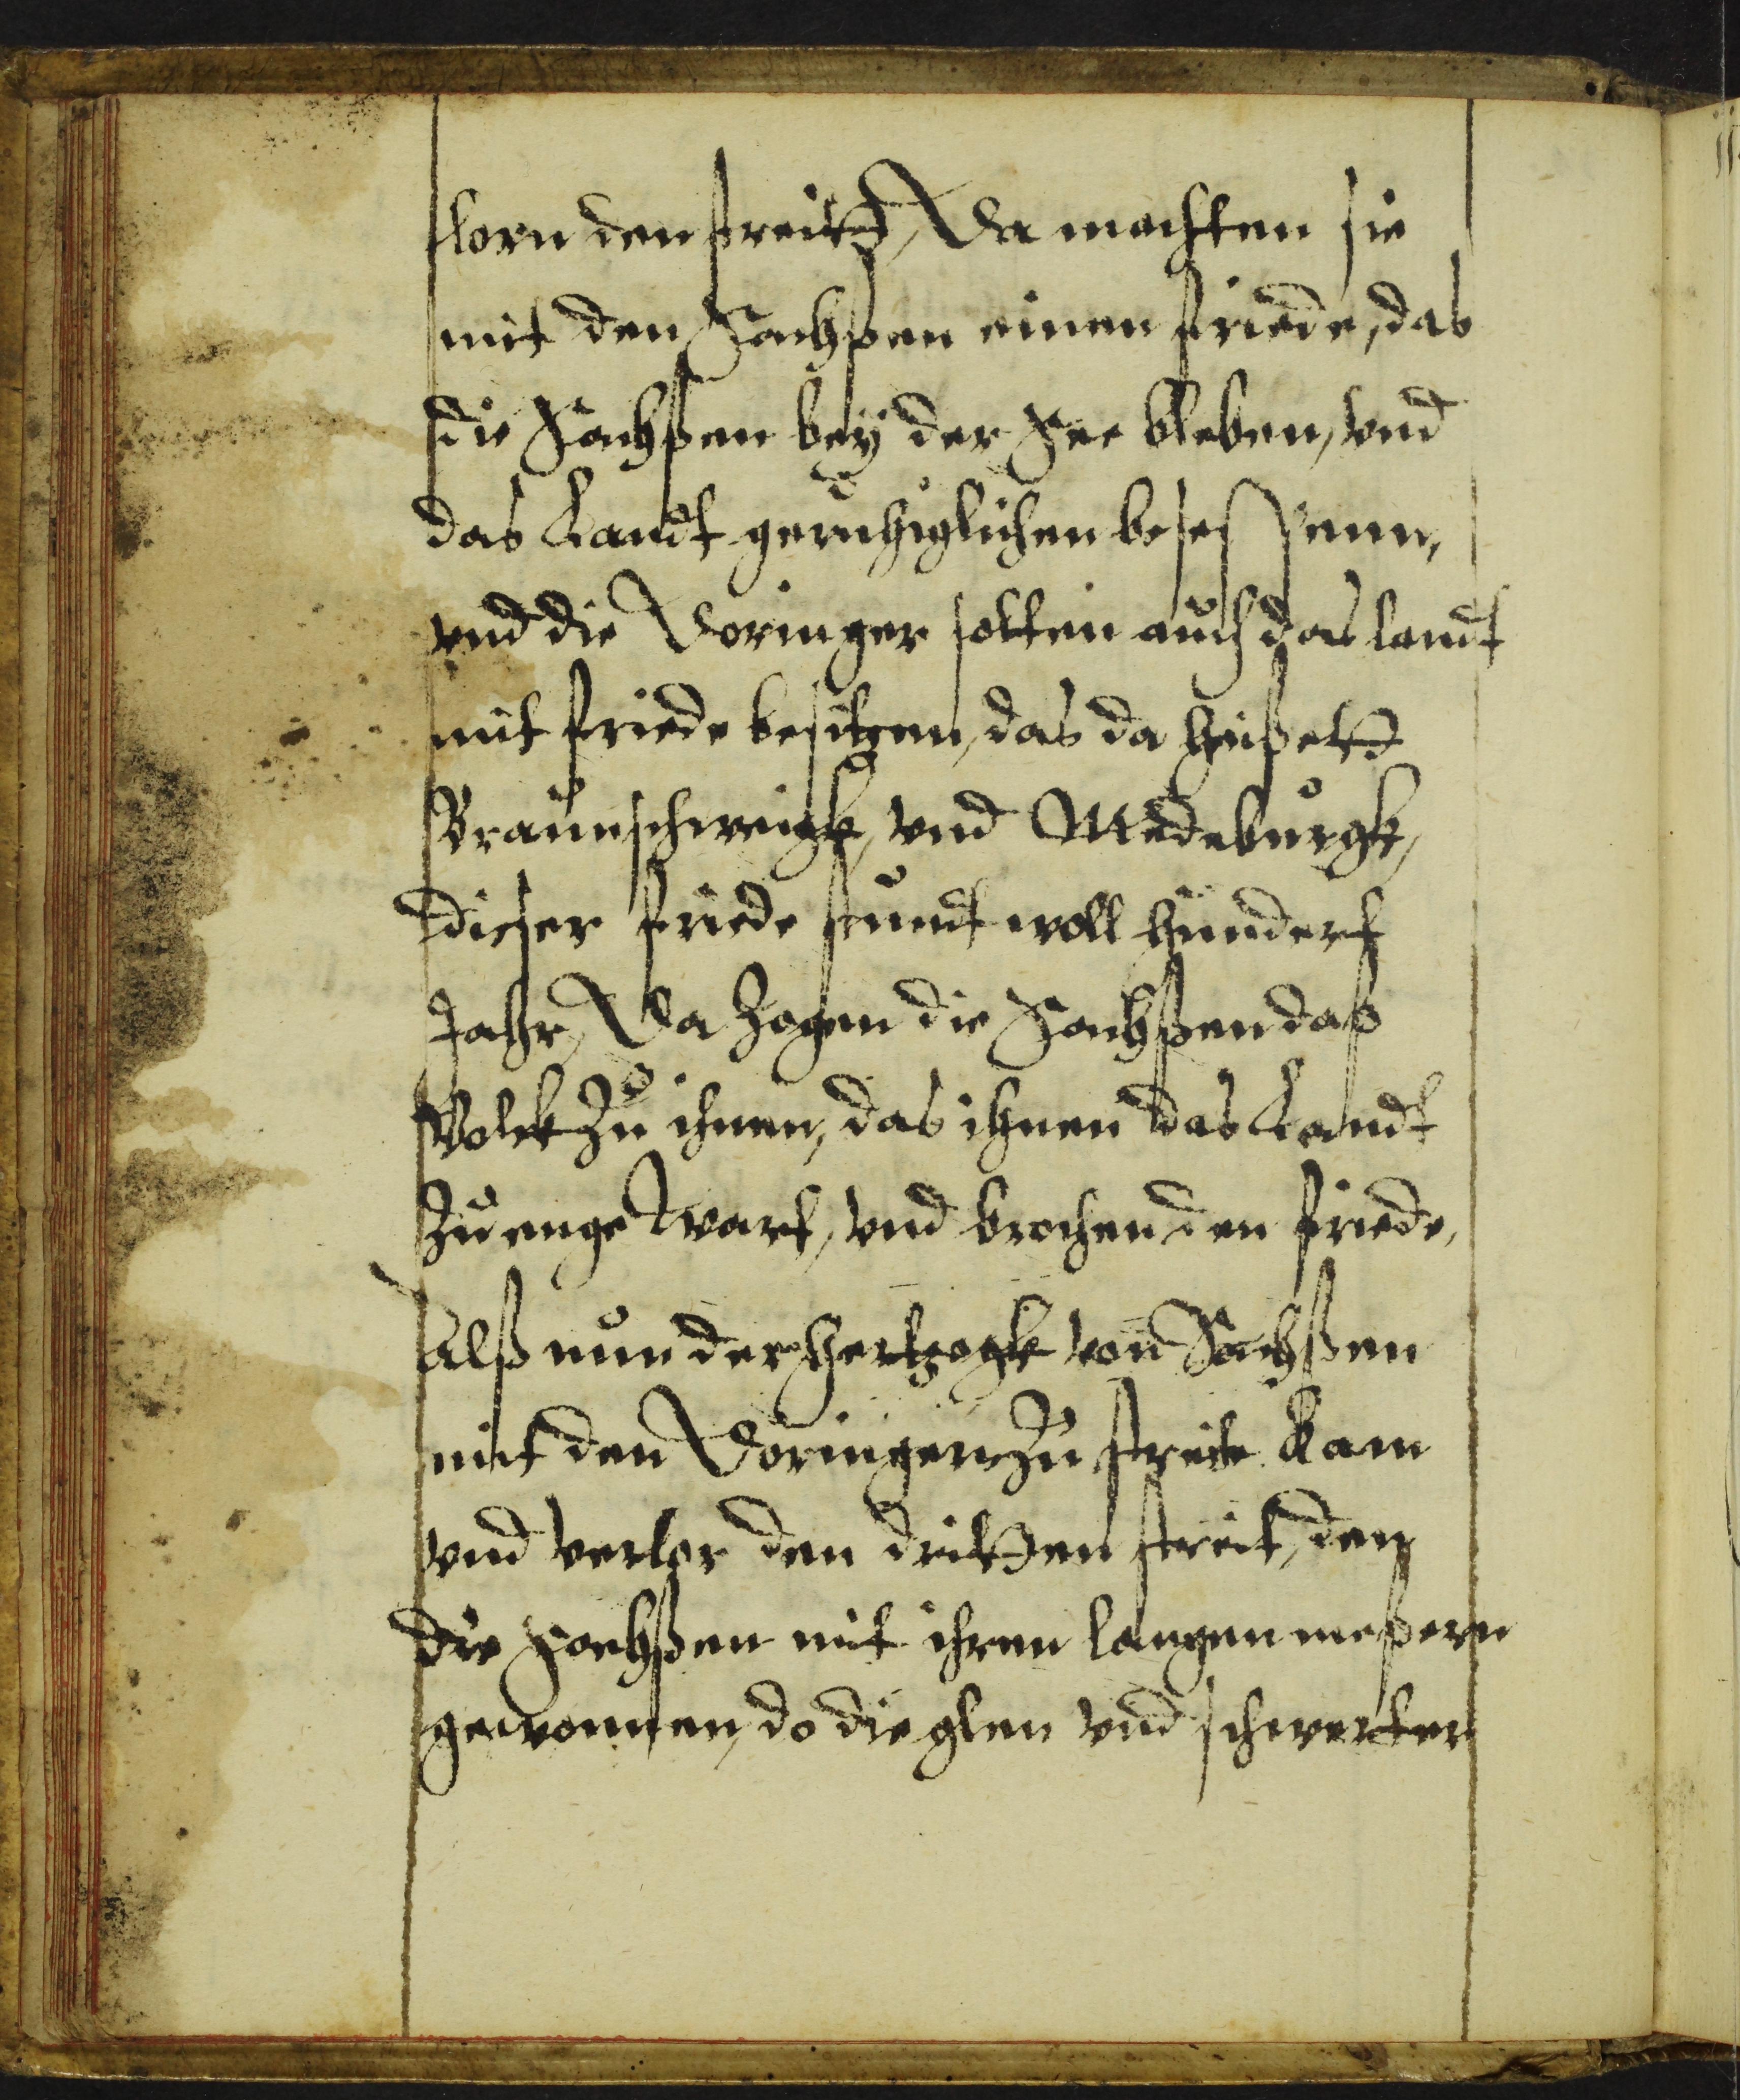 lorn den streitt, Da machten sie
mit den Sachßen einen friede, das
die Sachßen beÿ der See bleben, vnd
das Landt geruhiglichen besessenn,
vnd die Doringer solten auch das landt
mit friede besitzen, das da heißett
Braunschweigk, vnd Medeburgk,
dieser friede stundt woll hundert
Jahr, Da zogen die Sachßen das
Volck zu ihnen, das ihnen das Landt
zu enge wart, vnd brochen den friede,
Alß nun der Hertzogk von Sachßen
mit den Doringern zu streite kam
vnd verlor den dritten streit, den
die Sachßen mit ihren langen meßern
gewonnen, do die glen vnd schwerter